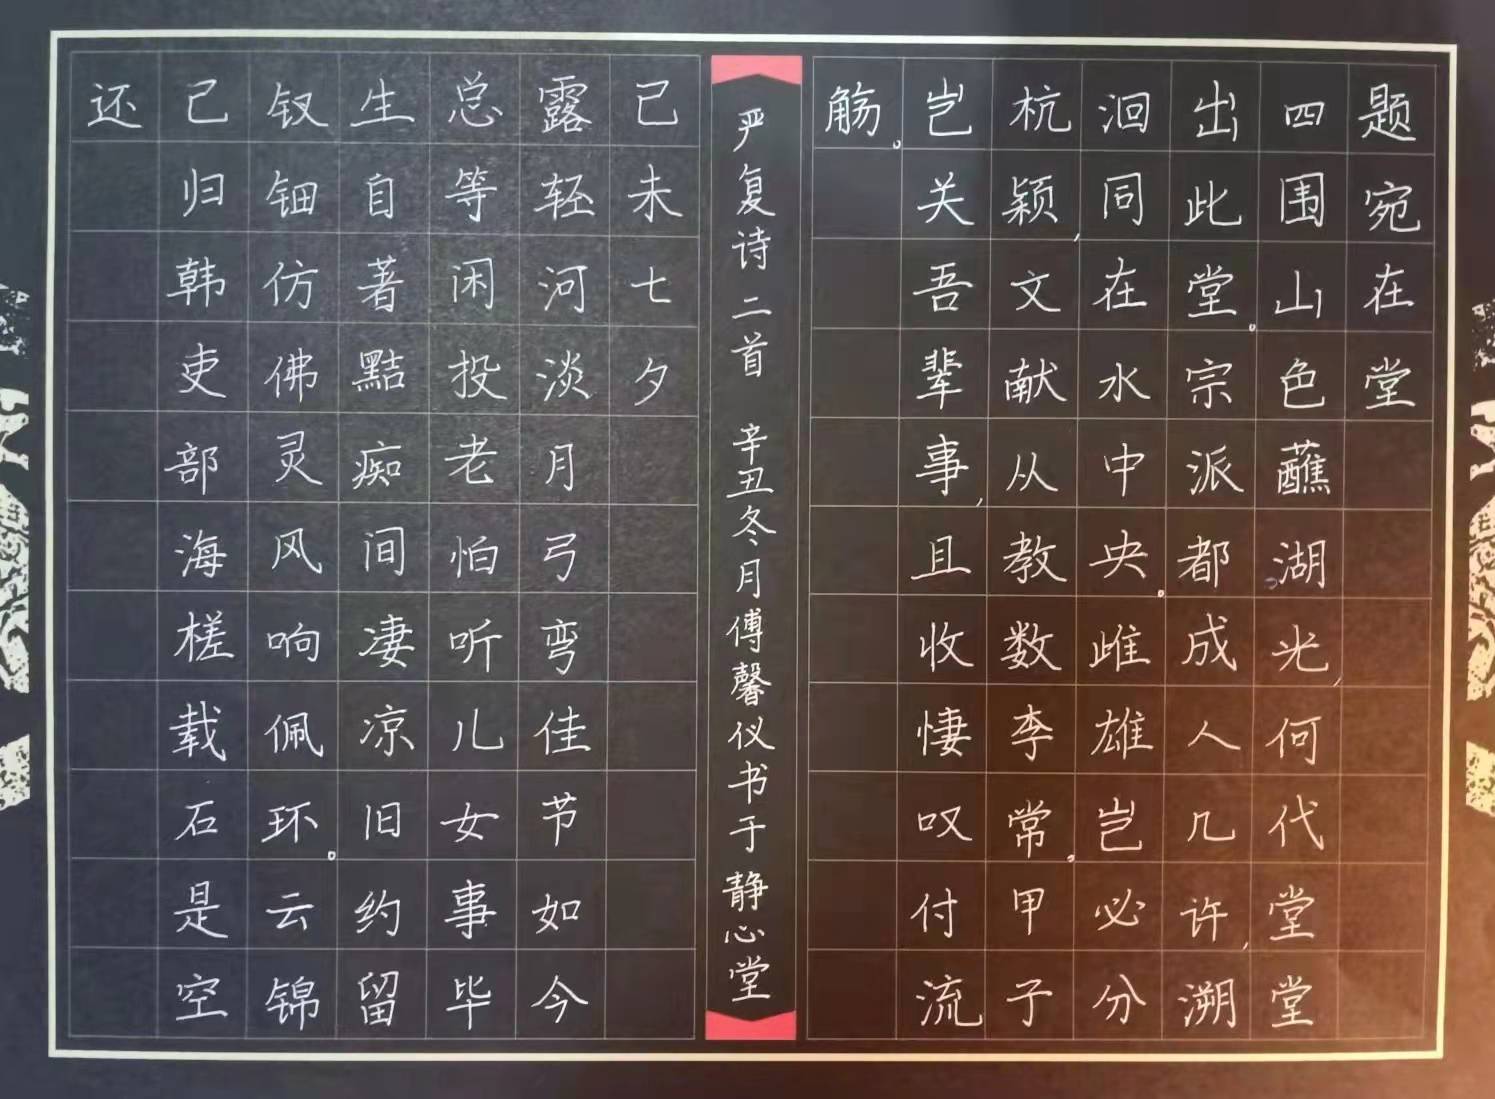 题宛在堂
四围山色蘸湖光,何代堂堂
出此堂。宗派都成人几许,溯
洄同在水中央。雌雄岂必分
杭颖,文献从教数李常。甲子
岂关吾辈事,且收悽叹付流
觞。
严复诗二首 辛丑冬月傅馨仪书于静心堂
己未七夕
露轻河淡月弓弯佳节如今
总等闲投老怕听儿女事毕
生自著黠痴间凄凉旧约留
钗钿仿佛灵风响佩环。云锦
已归韩吏部海槎载石是空
还